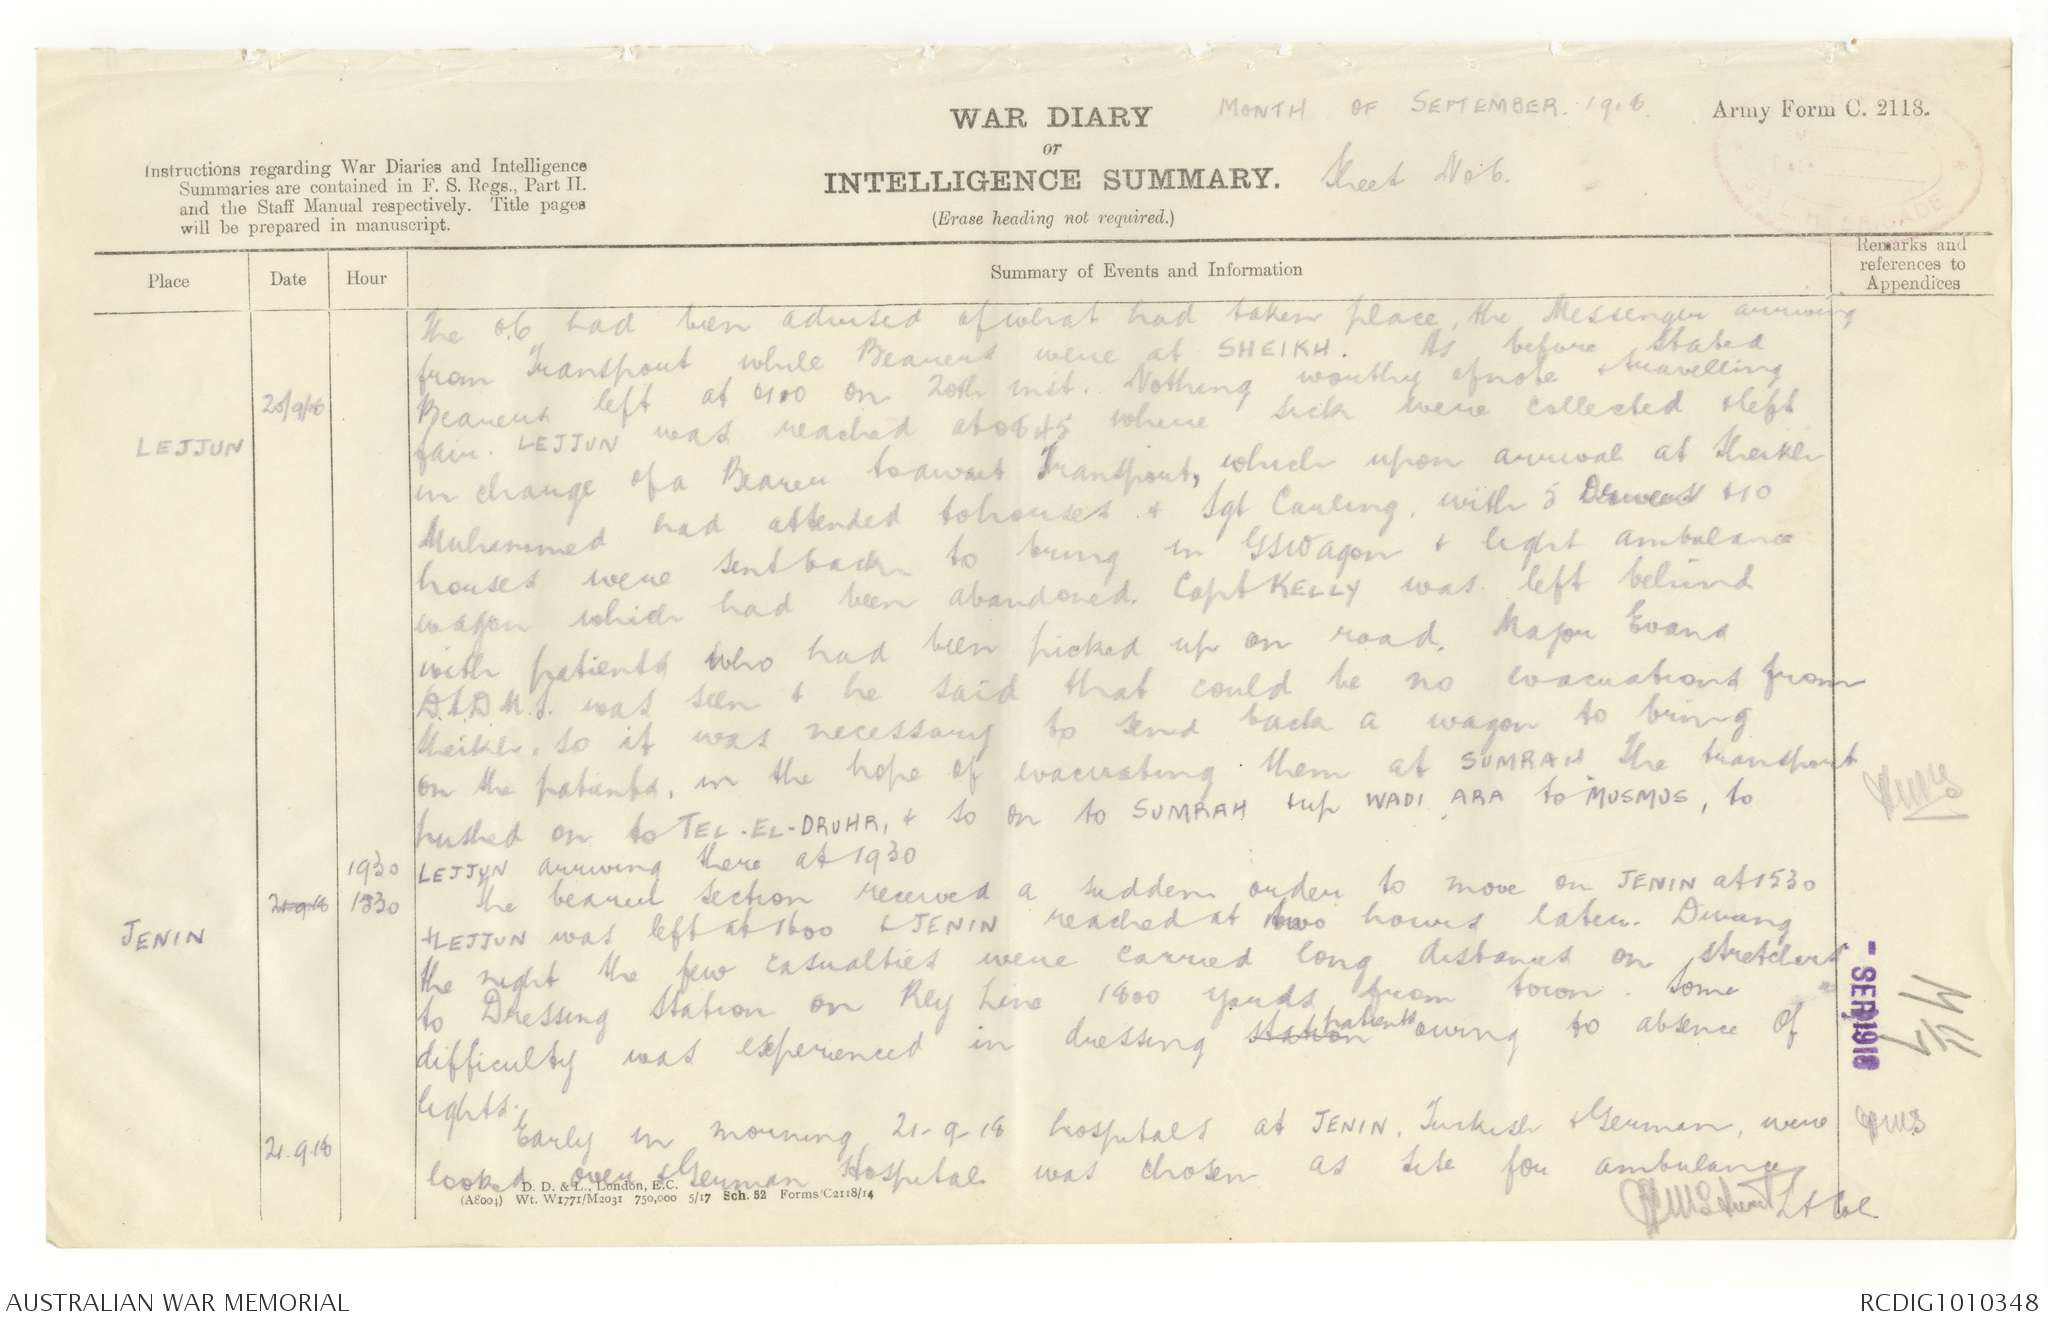 WAR DIARY
or
INTELLIGENCE SUMMARY.
(Erase heading not required.)
MONTH OF SEPTEMBER. 1918.
Sheet No 6.
Army Form C. 2118.
Instructions regarding War Diaries and Intelligence
Summaries are contained in F. S. Regs., Part II.
and the Staff Manual respectively. Title pages
will be prepared in manuscript.
Place
Date
Hour
Summary of Events and Information
Remarks and
references to
Appendices
The O.C had been advised of what had taken place, the Messenger arriving
from Transport while Bearers were at SHEIKH. As before stated
20/9/18
Bearers left at 0100 on 20th inst. Nothing worthy of note & travelling
LEJJUN
fair. LEJJUN was reached at 0645 where sick were collected & left
in charge of a Bearer to await Transport, which upon arrival at Sheikh
Muhammed had attended to horses & Sgt Carling, with 5 Drivers & 10
horses were sent back to bring in GSWagon & light ambulance
wagon which had been abandoned. Capt KELLY was left behind
with patients who had been picked up on road. Major Evans
D.A.D.M.S. was seen & he said that could be no evacuations from
Sheikh, so it was necessary to send back a wagon to bring
on the patients, in the hope of evacuating them at SUMRAH The transport
pushed on to TEL-EL-DRUHR, & so on to SUMRAH & up WADI ARA to MUSMUS, to
1930
LEJJUN arriving there at 1930
21.9.18
1530
The bearer section received a sudden order to move on JENIN at 1530
JENIN
& LEJJUN was left at 1600 & JENIN reached at two hours later. During
the night the few casualties were carried long distances on stretchers
to Dressing Station on Rly Line 1800 yards from town. Some
difficulty was experienced in dressing station patients owing to absence of
lights.
21.9.18
Early in morning 21-9-18 hospitals at JENIN, Turkish & German, were
looked over & German Hospital was chosen as site for ambulance
Lt Col
- SEP 1918
D. D. & L., London, E.C.
(A8004) Wt. W1771/M2031 750,000 5/17 Sch. 52 Forms/C2118/14
AUSTRALIAN WAR MEMORIAL
RCDIG1010348